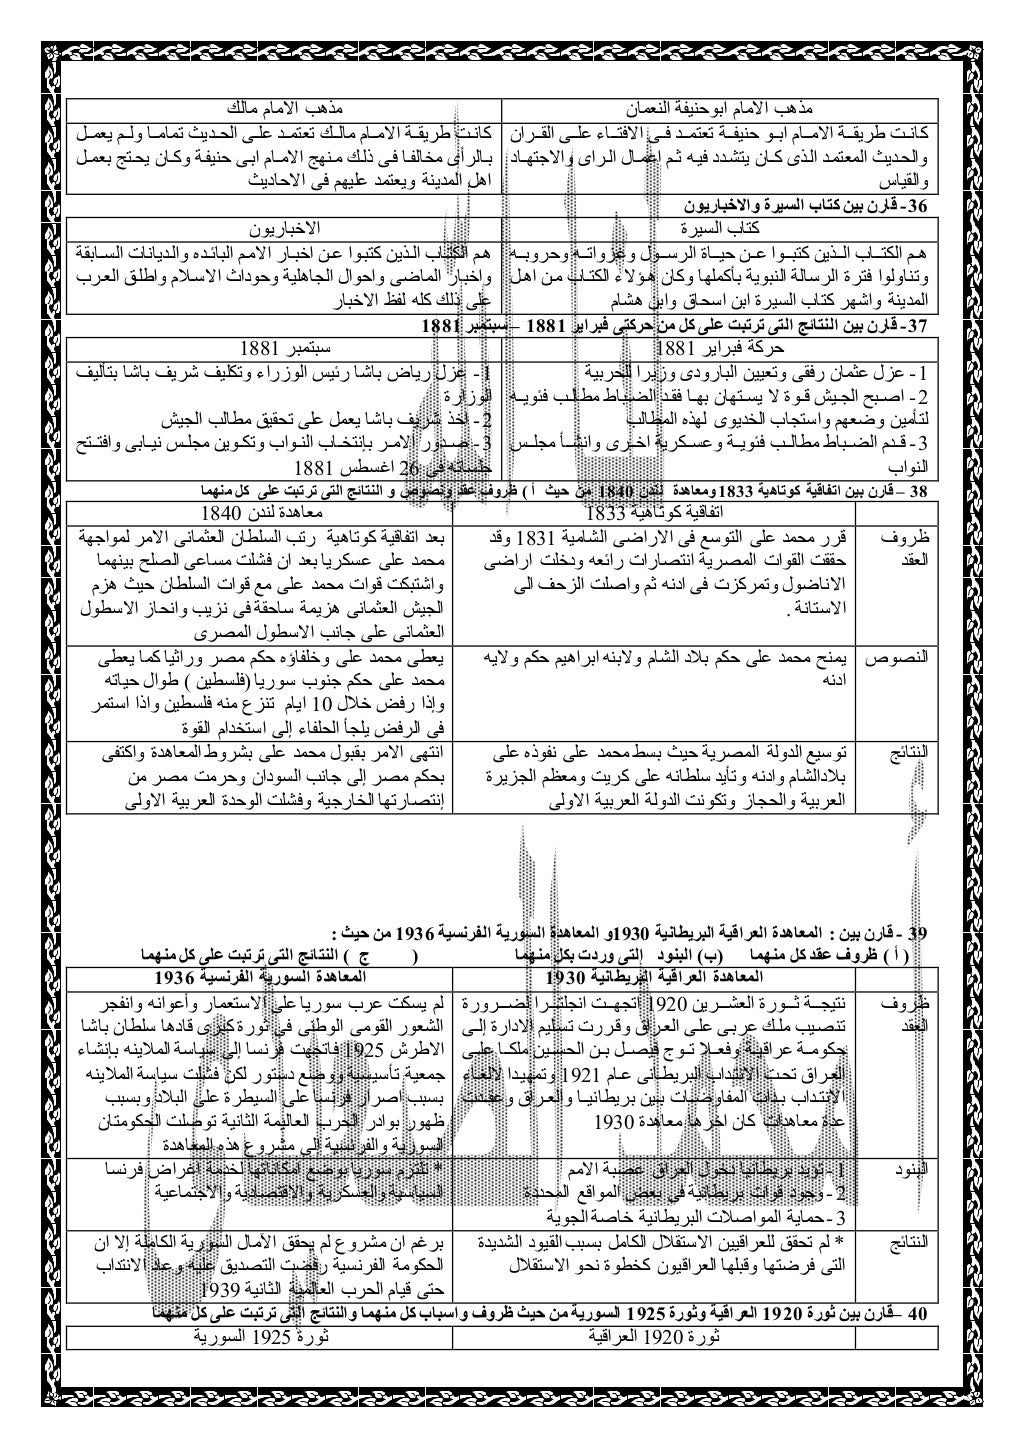 مذهب الامام ابوحنيفة النعمان
مذهب الامام مالك
كانت طريقة الامام ابو حنيفة تعتمد فى الافتاء على القران
والحديث المعتمد الذى كان يتشدد فيه ثم اعمال الراى والاجتهاد
والقياس
كانت طريقة الامام مالك تعتمد على الحديث تماما ولم يعمل
بالرأى مخالفا فى ذلك منهج الامام ابى حنيفة وكان يحتج بعمل
اهل المدينة ويعتمد عليهم فى الاحاديث
36- قارن بين كتاب السيرة والاخباريون
كتاب السيرة
الاخباريون
هم الكتاب الذين كتبوا عن حياة الرسول وغزواته وحروبه
وتناولوا فترة الرسالة النبوية بأكملها وكان هؤلاء الكتاب من اهل
المدينة واشهر كتاب السيرة ابن اسحاق وابن هشام
هم الكتاب الذين كتبوا عن اخبار الامم البائده والديانات السابقة
واخبار الماضى واحوال الجاهلية وحوداث الاسلام واطلق العرب
على ذلك كله لفظ الاخبار
37- قارن بين النتائج التى ترتبت على كل من حركتى فبراير 1881 – سبتمبر 1881
حركة فبراير 1881
سبتمبر 1881
1- عزل عثمان رفقى وتعيين البارودى وزيرا للحربية
2- اصبح الجيش قوة لا يستهان بها فقد الضباط مطالب فئويه
لتأمين وضعهم واستجاب الخديوى لهذه المطالب
3- قدم الضباط مطالب فئوية وعسكرية اخرى وانشأ مجلس
النواب
1- عزل رياض باشا رئيس الوزراء وتكليف شريف باشا بتأليف
الوزارة
2- اخذ شريف باشا يعمل على تحقيق مطالب الجيش
3- صدور الامر بإنتخاب النواب وتكوين مجلس نيابى وافتتح
جلساته فى 26 اغسطس 1881
38 – قارن بين اتفاقية كوتاهية 1833ومعاهدة لندن 1840 من حيث أ ) ظروف عقد ونصوص و النتائج التى ترتبت على كل منهما
اتفاقية كوتاهية 1833
معاهدة لندن 1840
ظروف
العقد
قرر محمد على التوسع فى الاراضى الشامية 1831 وقد
حققت القوات المصرية انتصارات رائعه ودخلت اراضى
الاناضول وتمركزت فى ادنه ثم واصلت الزحف الى
الاستانة .
بعد اتفاقية كوتاهية رتب السلطان العثمانى الامر لمواجهة
محمد على عسكريا بعد ان فشلت مساعى الصلح بينهما
واشتبكت قوات محمد على مع قوات السلطان حيث هزم
الجيش العثمانى هزيمة ساحقة فى نزيب وانحاز الاسطول
العثمانى على جانب الاسطول المصرى
النصوص
يمنح محمد على حكم بلاد الشام ولابنه ابراهيم حكم ولايه
ادنه
يعطى محمد على وخلفاؤه حكم مصر وراثيا كما يعطى
محمد على حكم جنوب سوريا (فلسطين ) طوال حياته
وإذا رفض خلال 10 ايام تنزع منه فلسطين واذا استمر
فى الرفض يلجأ الحلفاء إلى استخدام القوة
النتائج
توسيع الدولة المصرية حيث بسط محمد على نفوذه على
بلادالشام وادنه وتأيد سلطانه على كريت ومعظم الجزيرة
العربية والحجاز وتكونت الدولة العربية الاولى
انتهى الامر بقبول محمد على بشروط المعاهدة واكتفى
بحكم مصر إلى جانب السودان وحرمت مصر من
إنتصارتها الخارجية وفشلت الوحدة العربية الاولى
39 - قارن بين : المعاهدة العراقية البريطانية 1930و المعاهدة السورية الفرنسية 1936 من حيث :
( أ ) ظروف عقد كل منهما (ب) البنود التى وردت بكل منهما ( ج ) النتائج التى ترتبت على كل منهما
المعاهدة العراقية البريطانية 1930
المعاهدة السورية الفرنسية 1936
ظروف
العقد
نتيجة ثورة العشرين 1920 اتجهت انجلترا لضرورة
تنصيب ملك عربى على العراق وقررت تسليم الادارة إلى
حكومة عراقية وفعلا توج فيصل بن الحسين ملكا على
العراق تحت الانتداب البريطانى عام 1921 وتمهيدا لالغاء
الانتداب بدات المفاوضات بين بريطانيا والعراق وعقدت
عدة معاهدات كان اخرها معاهدة 1930
لم يسكت عرب سوريا على الاستعمار وأعوانه وانفجر
الشعور القومى الوطنى في ثورة كبرى قادها سلطان باشا
الاطرش 1925 فاتجهت فرنسا إلى سياسة الملاينه بإنشاء
جمعية تأسيسية ووضع دستور لكن فشلت سياسة الملاينه
بسبب اصرار فرنسا على السيطرة على البلاد وبسبب
ظهور بوادر الحرب العالمية الثانية توصلت الحكومتان
السورية والفرنسية إلى مشروع هذه المعاهدة
البنود
1- تؤيد بريطانيا دخول العراق عصبة الامم
2- وجود قوات بريطانية في بعض المواقع المحددة
3- حماية المواصلات البريطانية خاصة الجوية
* تلتزم سوريا بوضع امكاناتها لخدمة اغراض فرنسا
السياسية والعسكرية والاقتصادية والاجتماعية
النتائج
* لم تحقق للعراقيين الاستقلال الكامل بسبب القيود الشديدة
التى فرضتها وقبلها العراقيون كخطوة نحو الاستقلال
برغم ان مشروع لم يحقق الآمال السورية الكاملة إلا ان
الحكومة الفرنسية رفضت التصديق عليه وعاد الانتداب
حتى قيام الحرب العالمية الثانية 1939
40 –قارن بين ثورة 1920 العراقية وثورة 1925 السورية من حيث ظروف واسباب كل منهما والنتائج التى ترتبت على كل منهما
ثورة 1920 العراقية
ثورة 1925 السورية